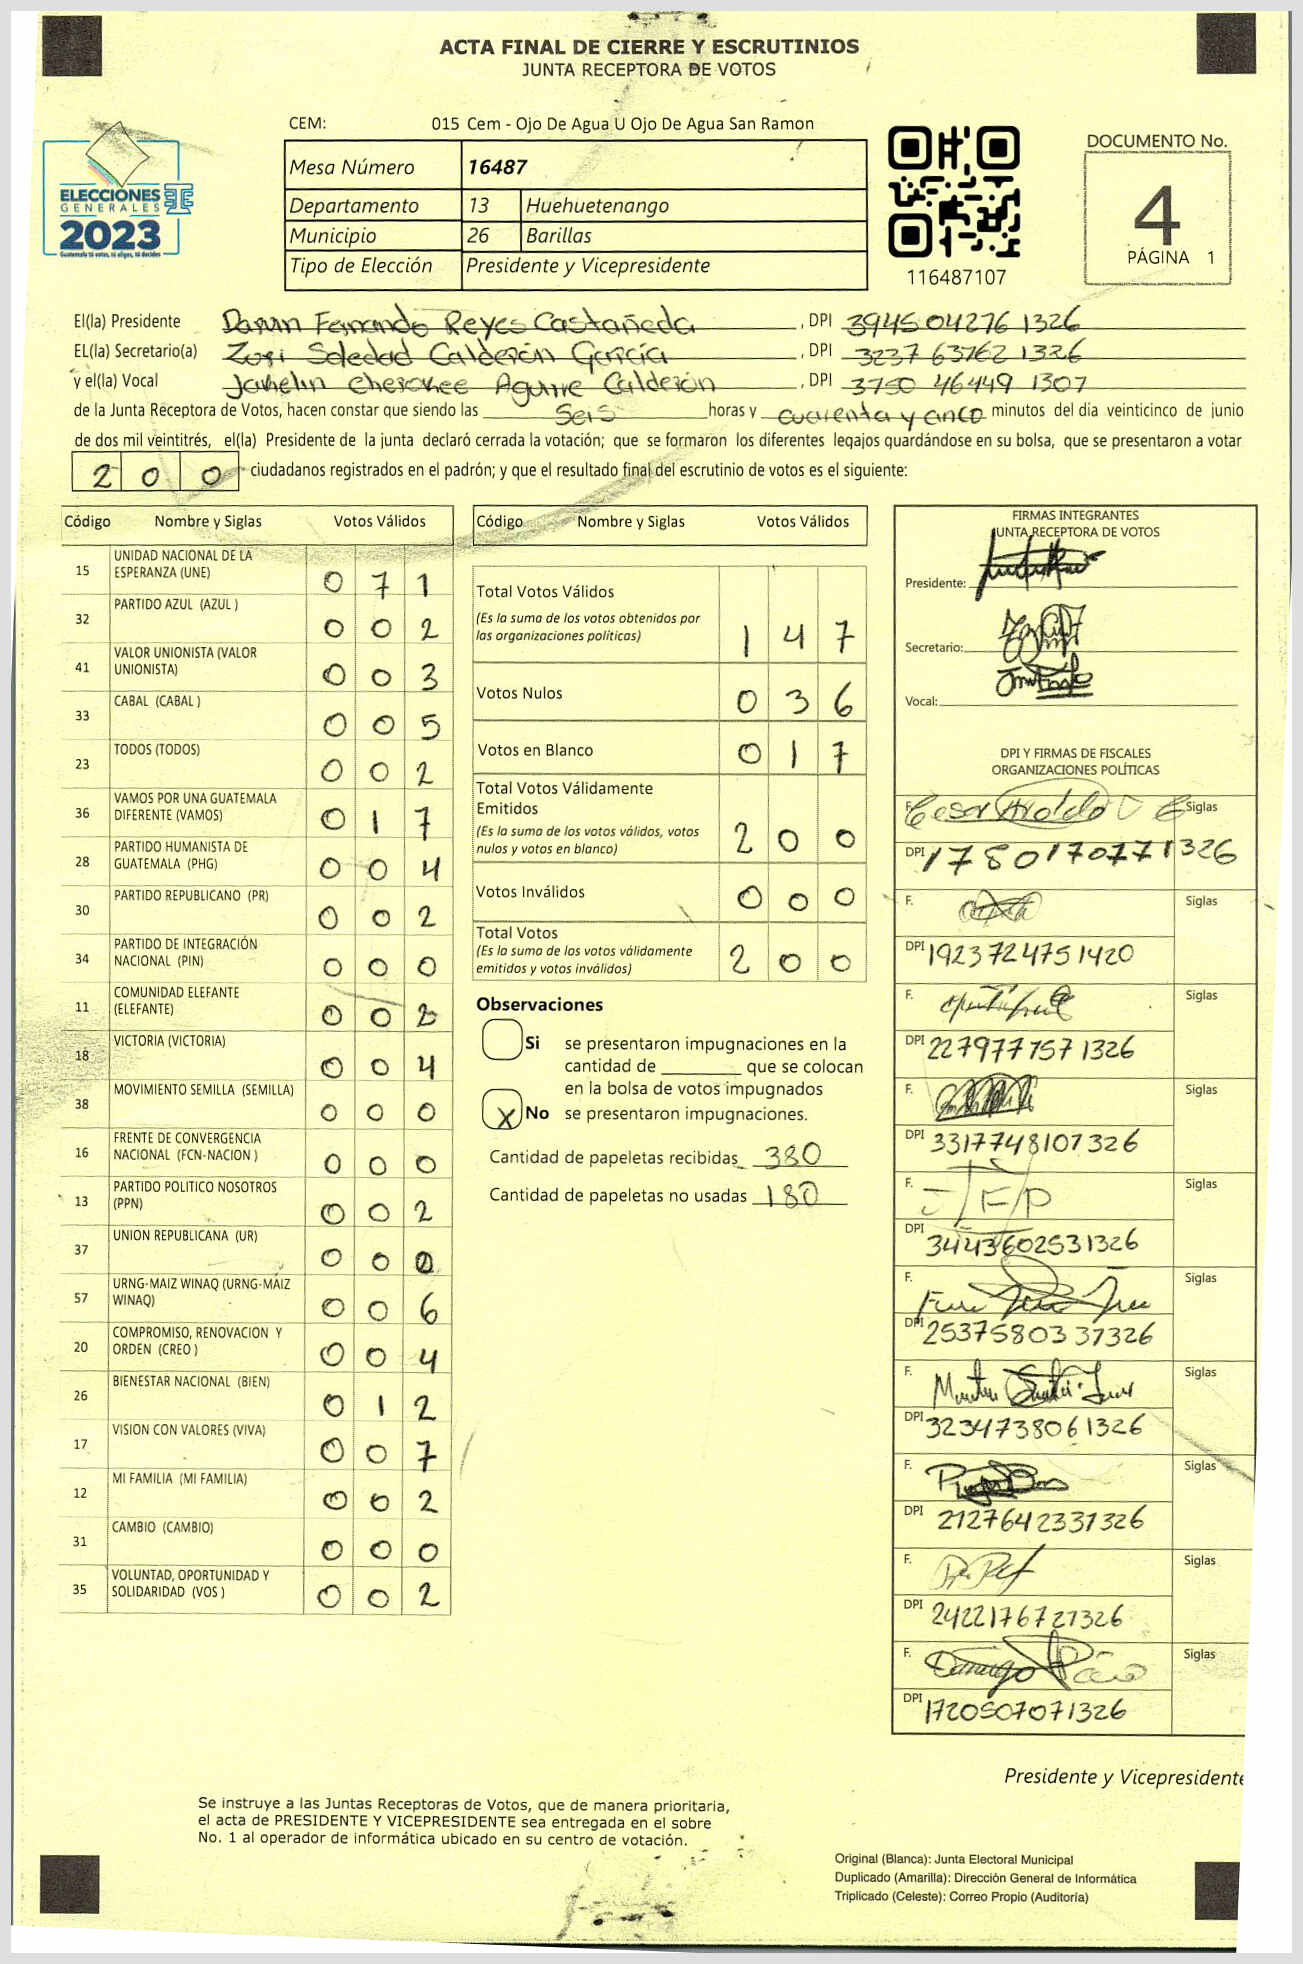 ACTA FINAL DE CIERRE Y ESCRUTINIOS
JUNTA RECEPTORA DE VOTOS
CEM: 015 Cem - Ojo De Agua U Ojo De Agua San Ramon
ELECCIONES
GENERALES
2023
Guatemala tú votas, tú eliges, tú decides
Mesa Número 16487
Departamento 13 Huehuetenango
Municipio 26 Barillas
Tipo de Elección Presidente y Vicepresidente
116487107
DOCUMENTO No.
4
PÁGINA 1
El(la) Presidente Darwn Fernando Reyes Castañeda, DPI 3945 04276 1326
EL(la) Secretario(a) Zusi Soledad Calderón García, DPI 3237 63762 1326
y el(la) Vocal Jakelin Cherokee Aguirre Calderón, DPI 3750 46449 1307
de la Junta Receptora de Votos, hacen constar que siendo las Seis horas y cuarenta y cinco minutos del día veinticinco de junio
de dos mil veintitrés, el(la) Presidente de la junta declaró cerrada la votación; que se formaron los diferentes legajos guardándose en su bolsa, que se presentaron a votar
200 ciudadanos registrados en el padrón; y que el resultado final del escrutinio de votos es el siguiente:
Código Nombre y Siglas Votos Válidos
15 UNIDAD NACIONAL DE LA ESPERANZA (UNE) 0 7 1
32 PARTIDO AZUL (AZUL ) 0 0 2
41 VALOR UNIONISTA (VALOR UNIONISTA) 0 0 3
33 CABAL (CABAL ) 0 0 5
23 TODOS (TODOS) 0 0 2
36 VAMOS POR UNA GUATEMALA DIFERENTE (VAMOS) 0 1 7
28 PARTIDO HUMANISTA DE GUATEMALA (PHG) 0 0 4
30 PARTIDO REPUBLICANO (PR) 0 0 2
34 PARTIDO DE INTEGRACIÓN NACIONAL (PIN) 0 0 0
11 COMUNIDAD ELEFANTE (ELEFANTE) 0 0 2
18 VICTORIA (VICTORIA) 0 0 4
38 MOVIMIENTO SEMILLA (SEMILLA) 0 0 0
16 FRENTE DE CONVERGENCIA NACIONAL (FCN-NACION ) 0 0 0
13 PARTIDO POLITICO NOSOTROS (PPN) 0 0 2
37 UNION REPUBLICANA (UR) 0 0 0
57 URNG-MAIZ WINAQ (URNG-MAIZ WINAQ) 0 0 6
20 COMPROMISO, RENOVACION Y ORDEN (CREO ) 0 0 4
26 BIENESTAR NACIONAL (BIEN) 0 1 2
17 VISION CON VALORES (VIVA) 0 0 7
12 MI FAMILIA (MI FAMILIA) 0 0 2
31 CAMBIO (CAMBIO) 0 0 0
35 VOLUNTAD, OPORTUNIDAD Y SOLIDARIDAD (VOS ) 0 0 2
Código Nombre y Siglas Votos Válidos
Total Votos Válidos 1 4 7
(Es la suma de los votos obtenidos por
las organizaciones políticas)
Votos Nulos 0 3 6
Votos en Blanco 0 1 7
Total Votos Válidamente
Emitidos 2 0 0
(Es la suma de los votos válidos, votos
nulos y votos en blanco)
Votos Inválidos 0 0 0
Total Votos 2 0 0
(Es la suma de los votos válidamente
emitidos y votos inválidos)
Observaciones
Si se presentaron impugnaciones en la
cantidad de ________ que se colocan
en la bolsa de votos impugnados
X No se presentaron impugnaciones.
Cantidad de papeletas recibidas 380
Cantidad de papeletas no usadas 180
FIRMAS INTEGRANTES
JUNTA RECEPTORA DE VOTOS
Presidente:
Secretario:
Vocal:
DPI Y FIRMAS DE FISCALES
ORGANIZACIONES POLÍTICAS
F. Cesar Aroldo Siglas
DPI 1780170771326
F. Siglas
DPI 1923724751420
F. Siglas
DPI 2279777571326
F. Siglas
DPI 3317748107326
F. Siglas
DPI 3443602531326
F. Siglas
DPI 2537580337326
F. Siglas
DPI 3234738061326
F. Siglas
DPI 2127642331326
F. Siglas
DPI 2422176727326
F. Domingo Siglas
DPI 1720507071326
Presidente y Vicepresidente
Se instruye a las Juntas Receptoras de Votos, que de manera prioritaria,
el acta de PRESIDENTE Y VICEPRESIDENTE sea entregada en el sobre
No. 1 al operador de informática ubicado en su centro de votación.
Original (Blanca): Junta Electoral Municipal
Duplicado (Amarilla): Dirección General de Informática
Triplicado (Celeste): Correo Propio (Auditoría)